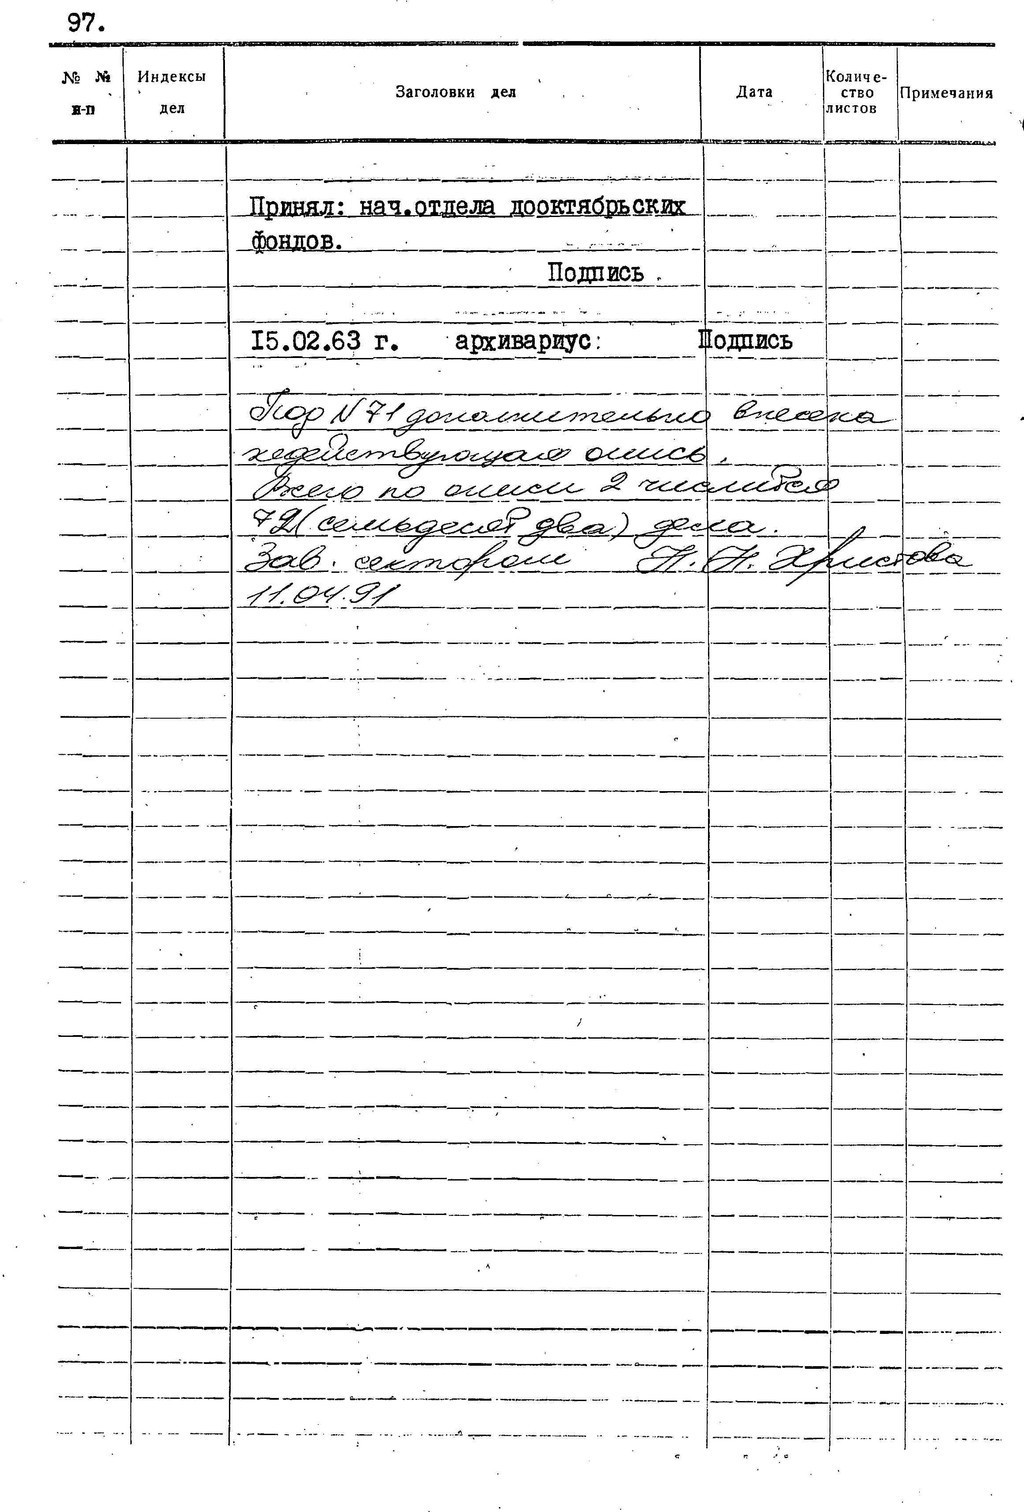 97.
№ № Индексы Заголовки дел Дата Количе- Примечания
п-п дел ство
листов
Принял: нач.отдела дооктябрьских
фондов.
Подпись.
15.02.63 г. архивариус: Подпись
Под N 71 дополнительно внесена
недействующая опись.
Всего по описи 2 числится
72 (семьдесят два) дела.
Зав. сектором Н. Н. Христова
11.04.91